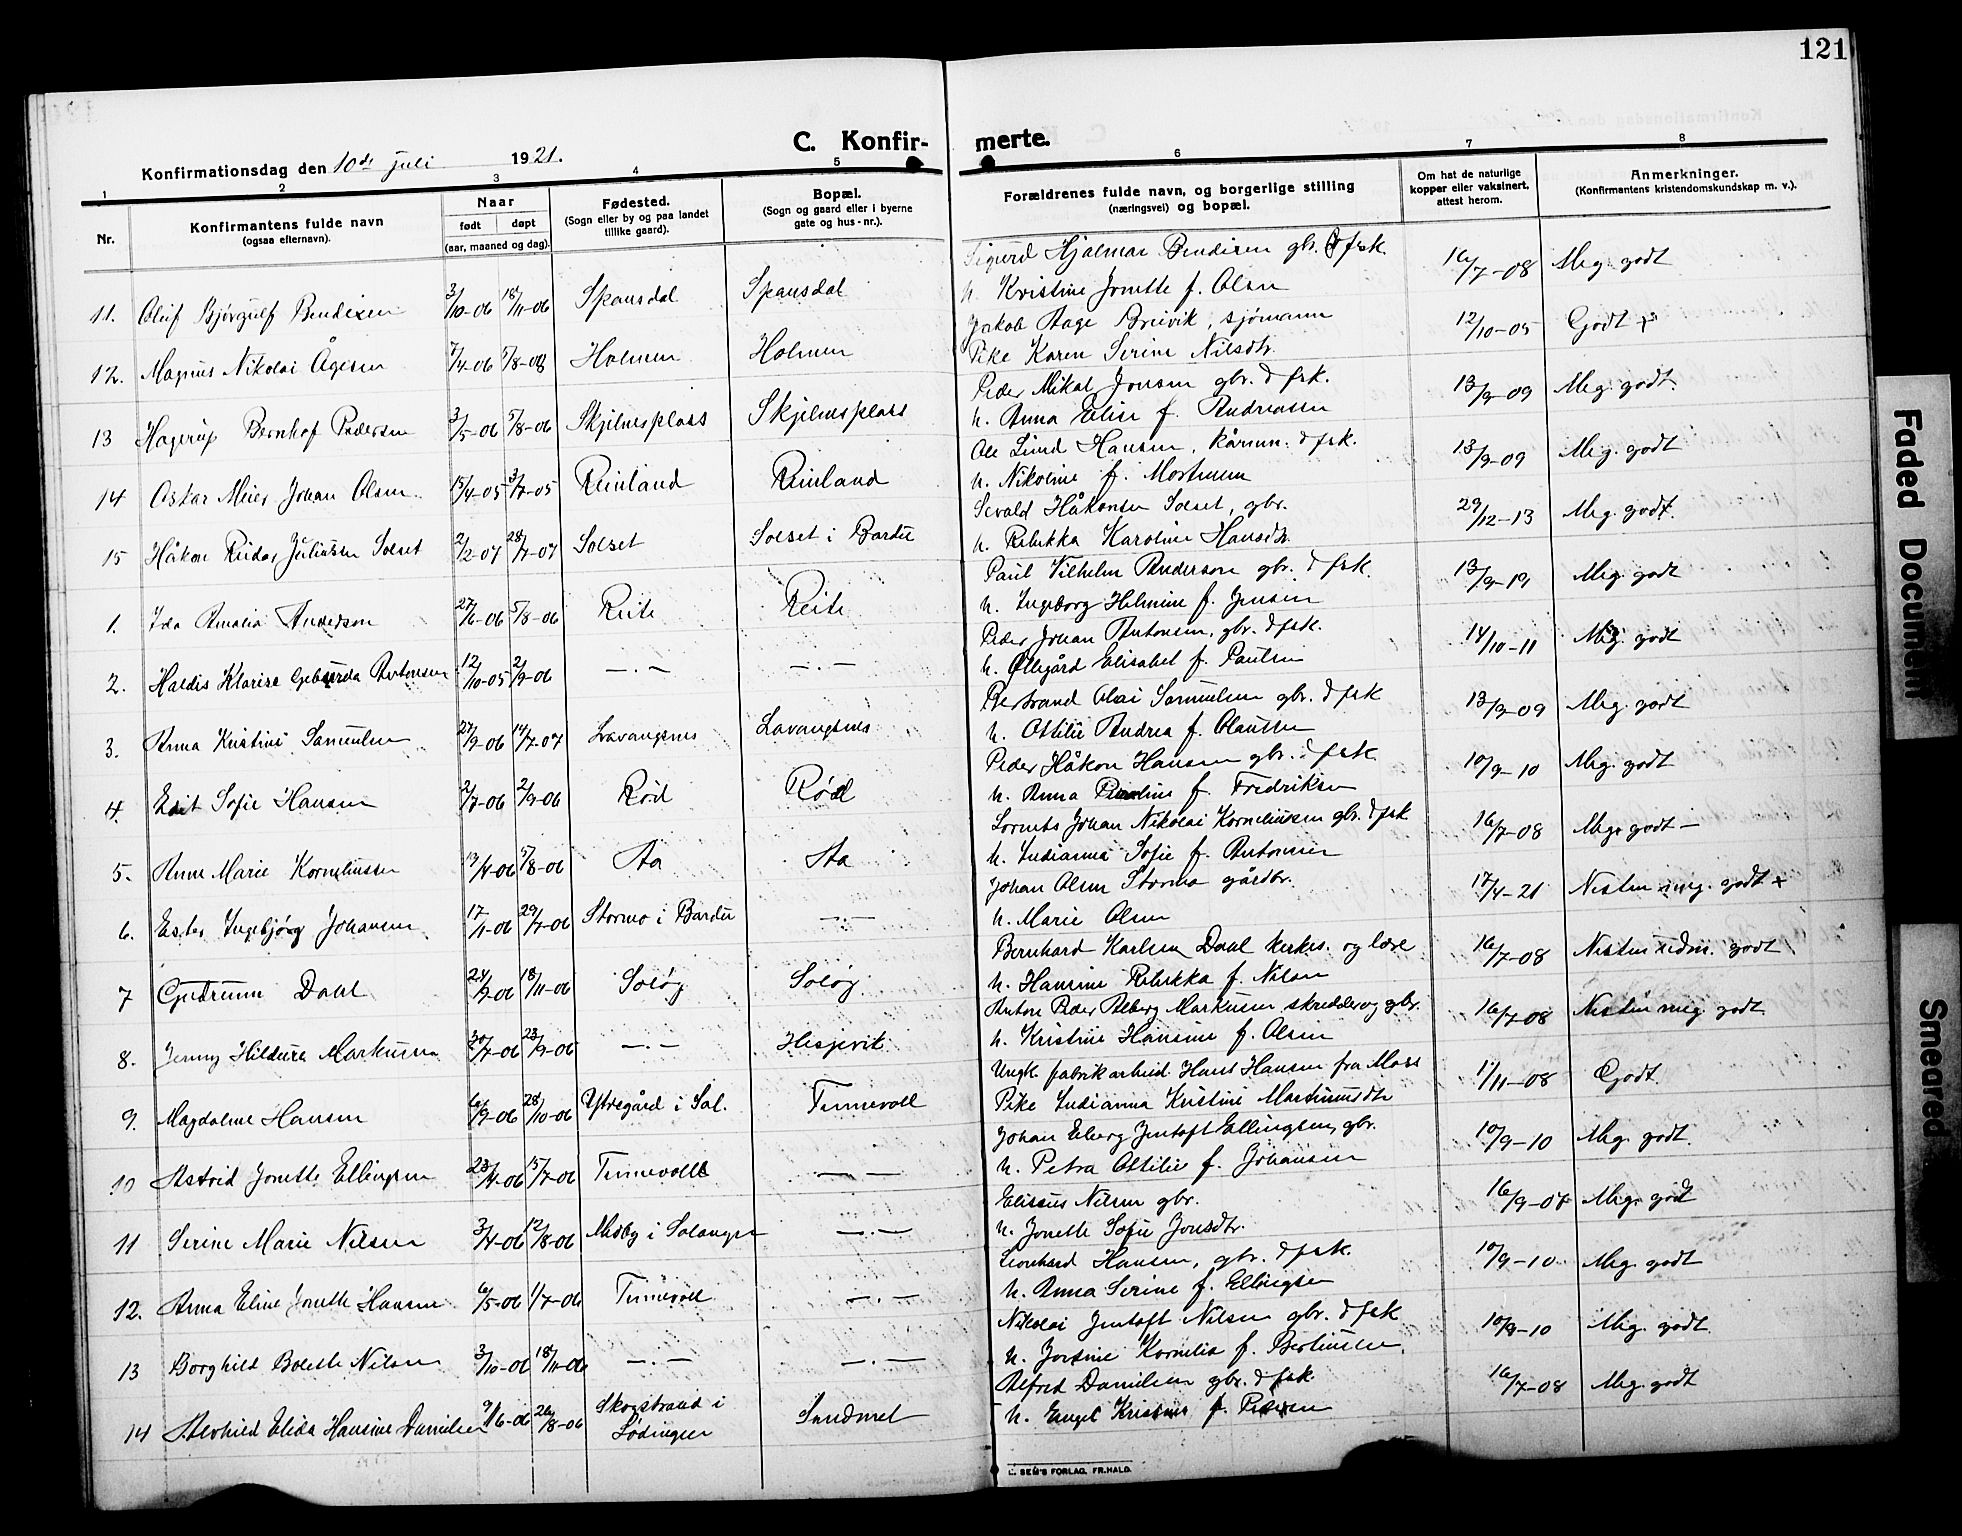 121
C. Konfir-
merte.
Konfirmationsdag den 10de juli 1921.
1 2 3 4 5 6 7 8
Nr.
Konfirmantens fulde navn
(ogsaa efternavn).
Naar
født døpt
(aar, maaned og dag).
Fødested.
(Sogn eller by og paa landet
tillike gaard).
Bopæl.
(Sogn og gaard eller i byerne
gate og hus-nr.).
Forældrenes fulde navn, og borgerlige stilling
(næringsvei) og bopæl.
Om hat de naturlige
kopper eller vaksinert,
attest herom.
Anmerkninger.
(Konfirmantens kristendomskundskap m. v.).
11. Oluf Bjørgulf Bendixen 3/10-06 18/11-06 Spansdal Spansdal
Sigurd Hjalmar Bendixen gbr. & fsk 16/7-08 Meg. godt
h. Kristine Jonette f. Olsen
12. Magnus Nikolai Ågesen 7/4-06 5/8-08 Holmen Holmen
Jakob Aage Breivik, sjømann 12/10-05 Godt +
Pike Karen Serine Nilsdtr.
13 Hagerup Bernhof Pedersen 3/5-06 5/8-06 Skjelnesplass Skjelnesplass
Peder Mikal Jensen gbr. & fsk. 13/9-09 Meg. godt.
h. Anna Elise f. Andreassen
14 Oskar Meier Johan Olsen 15/4-05 3/7-05 Reinland Reinland
Ole Lund Hansen, kårmn. & fsk. 13/9-09 Meg. godt
h. Nikoline f. Mortensen
15 Håkon Reidar Juliussen Solset 2/2-07 28/7-07 Solset Solset i Bardu
Sevald Håkonsen Solset, gbr. 29/12-13 Meg. godt.
h. Rebekka Karoline Hansdtr.
1. Ida Amalia Anderson 27/6-06 5/8-06 Reite Reite
Paul Vilhelm Anderson gbr. & fsk. 13/9-19 Meg. godt
h. Ingeborg Helmine f. Jensen
2. Haldis Klarisa Geburda Antonsen 12/10-05 2/9-06 —.— —.—
Peder Johan Antonsen, gbr. & fsk. 14/10-11 Meg. godt
h. Ollegård Elisabet f. Paulsen
3. Anna Kristine Samuelsen 27/9-06 14/7-07 Lavangsnes Lavangsnes
Bertrand Olai Samuelsen gbr. & fsk 13/9-09 Meg. godt
h. Ottilie Andrea f. Claussen
4. Edit Sofie Hansen 2/7-06 2/9-06 Rød Rød
Peder Håkon Hansen gbr. & fsk 10/9-10 Meg. godt
h. Anna Pauline f. Fredriksen
5. Anne Marie Korneliussen 13/4-06 5/8-06 Aa Aa
Lornts Johan Nikolai Korneliussen gbr. & fsk 16/7-08 Meg. godt —
h. Indianna Sofie f. Antonsen
6. Ester Ingebjørg Johansen 17/1-06 29/7-06 Stormo i Bardu —.—
Johan Olsen Stormo gårdbr. 17/4-21 Nesten meg. godt +
h. Marie Olsen
7 Gudrunn Dahl 24/9-06 18/11-06 Soløy Soløy
Bernhard Karlsen Dahl kirkes. og lære 16/7-08 Nesten udm. godt
h. Hansine Rebekka f. Nilsen
8. Jenny Hildura Markussen 30/7-06 23/9-06 —.— Hesjevik
Anton Peder Alberg Markussen skredder og gbr. 16/7-08 Nesten meg. godt
h. Kristine Hansine f. Olsen
9. Magdalene Hansen 6/9-06 28/10-06 Ytregård i Sal. Tennevoll
Ungk. fabrikarbeid. Hans Hansen fra Moss 1/11-08 Godt.
Pike Indianna Kristine Martinusdtr
10 Astrid Jonette Ellingsen 23/4-06 15/7-06 Tennevoll —.—
Johan Eberg Jentoft Ellingsen, gbr. 10/9-10 Meg. godt.
h. Petra Ottilie f. Johansen
11 Serine Marie Nilsen 3/4-06 12/8-06 Medby i Salangen —.—
Elisæus Nilsen gbr. 16/9-07 Meg. godt
h. Jonette Sofie Jonsdtr.
12. Anna Eline Jonette Hansen 6/5-06 1/7-06 Tennevoll —.—
Leonhard Hansen, gbr. & fsk. 10/9-10 Meg. godt
h. Anna Serine f. Ellingsen
13 Borghild Bolette Nilsen 3/10-06 18/11-06 —.— —.—
Nikolai Jentoft Nilsen gbr. & fsk 10/9-10 Meg. godt.
h. Jorsine Kornelia f. Bertinsen
14 Alvhild Elida Hansine Danielsen 9/6-06 26/8-06 Skogstrand i Lødingen Sandnet
Alfred Danielsen gbr. & fsk. 16/7-08 Meg. godt
h. Engel Kristine f. Pedersen
L. SEM'S FORLAG, FR.HALD.
Faded Document
Smeared